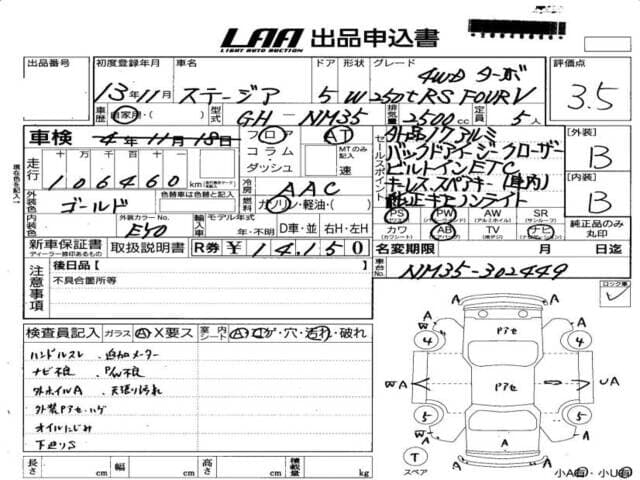 LAA 出品申込書
LIGHT AUTO AUCTION
出品番号 初度登録年月 車名 ドア 形状 グレード 評価点
13年11月 ステージア 5 W 250t RS FOUR V 4WD ターボ 3.5
車歴 自家用 型式 GH-NM35 排気量 2500 cc 定員 5人
車検 4年11月18日 フロア AT
コラム・ダッシュ MTのみ記入 速
走行 十万千百十一
106460 km
冷房 AAC
外装色 ゴールド 色替車は色替と記入 燃料 ガソリン・軽油・( )
内装色 外装カラーNo. EY0 輸入車 モデル年式 年・不明 D車・並 右H・左H
セールスポイント
外品17アルミ
バックドアイージークローザー
ビルトインETC
キーレス、スペアキー(車内)
純正キセノンライト
[外装] B
[内装] B
PS PW AW SR
(パワステ) (アルミホイル) (サンルーフ)
カワ AB TV ナビ
(カワシート) (エアバッグ)
純正品のみ丸印
新車保証書 取扱説明書 R券 ¥14,150 名変期限 月 日迄
ディーラー印のあるもの
車台No. NM35-302449
注意事項 後日品[ ]
不具合箇所等
ロック車
検査員記入 ガラス A・X要ス 室内 シート A・コゲ・穴・汚れ・破れ
ハンドルスレ、追加メーター
ナビ不良、P/W不良
外ホイルA 天張り汚れ
外装Pアセ・ハゲ
オイルにじみ
下廻りS
A A
W A A
4 Pアセ 4
WA Pアセ UA
5 5
W A A
A
T スペア
長さ cm 幅 cm 高さ cm 積載量 kg
小A有・小U有